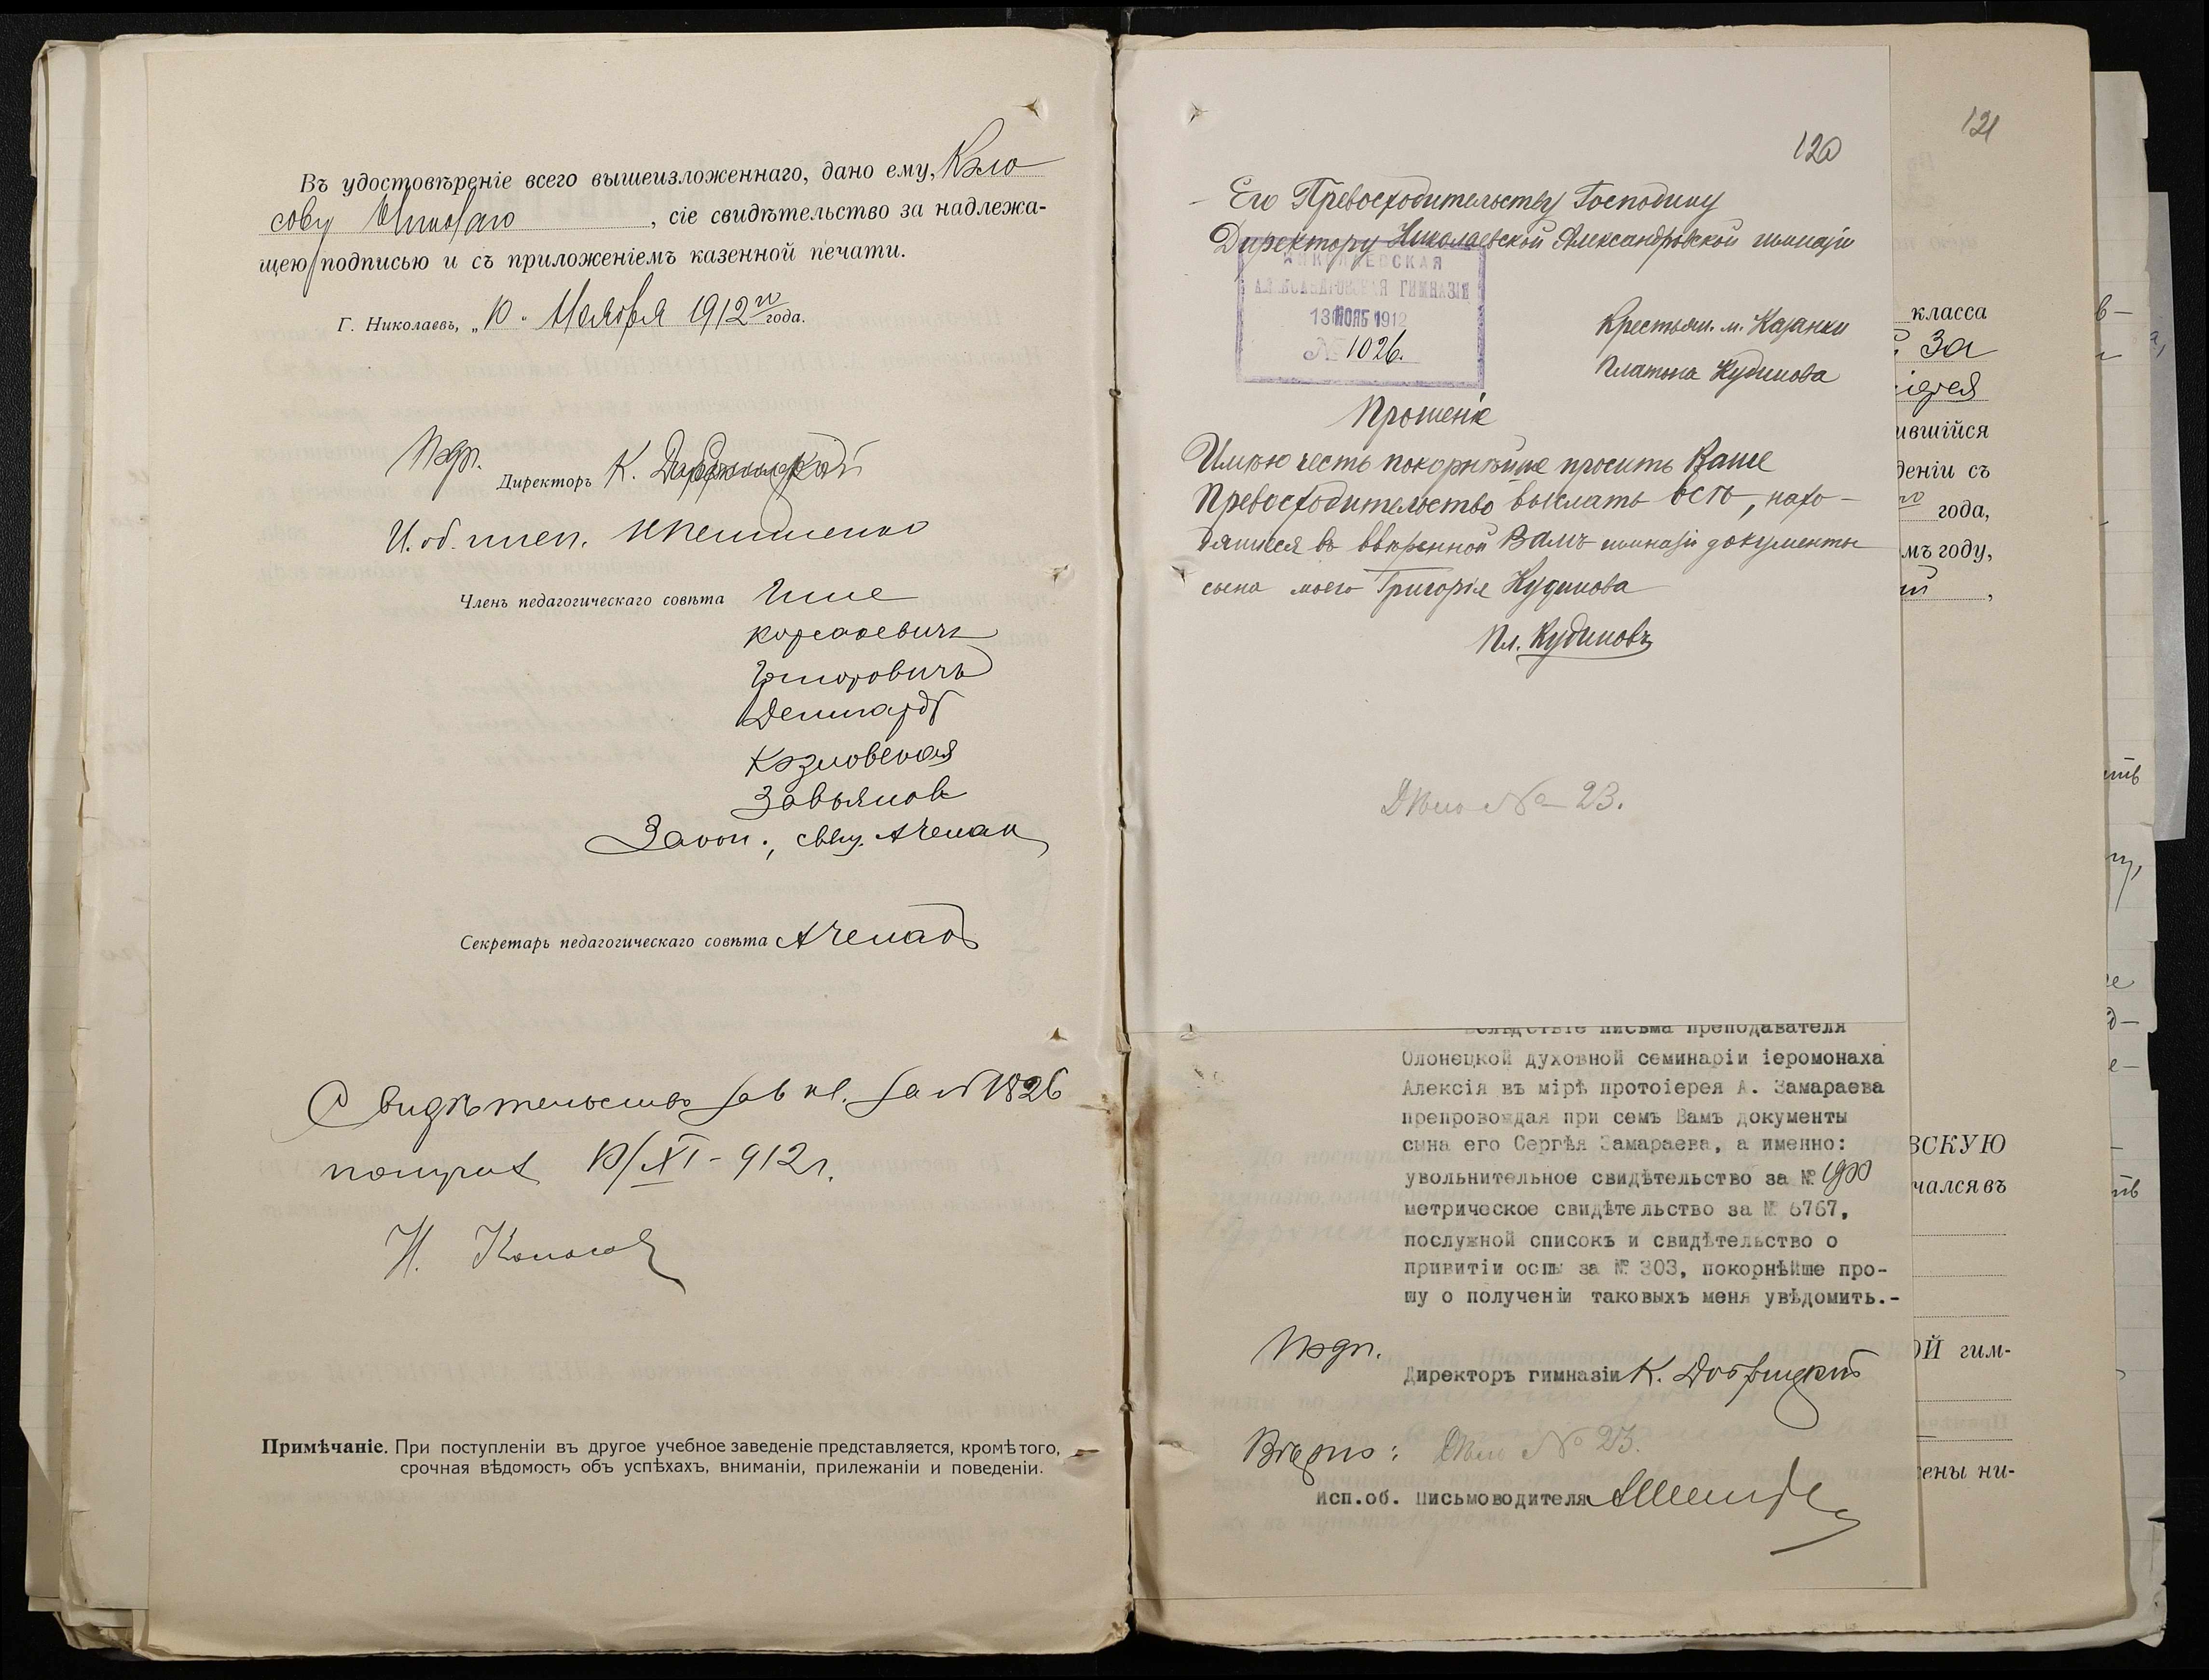 Въ удостовѣреніе всего вышеизложеннаго, дано ему, Коло
сову Николаю, сіе свидѣтельство за надлежа-
щею подписью и съ приложеніемъ казенной печати.
Г. Николаевъ, „10" Ноября 1912 го года.
Подп.
Директоръ К. Добрницкій
И. об. инсп.
Членъ педагогическаго совѣта
Григоровичъ
Козловская
Завьялов
Закон., свящ. А Чемак
Секретарь педагогическаго совѣта А Чемак
Свидѣтельство за 6 кл. за № 1826
получил 10/XI - 912 г.
Н. Колосов
Примѣчаніе. При поступленіи въ другое учебное заведеніе представляется, кромѣ того,
срочная вѣдомость объ успѣхахъ, вниманіи, прилежаніи и поведеніи.
120
Его Превосходительству Господину
Директору Николаевской Александровской гимназіи
НИКОЛАЕВСКАЯ
АЛЕКСАНДРОВСКАЯ ГИМНАЗІЯ
13 НОЯБ 1912
№ 1026.
Крестьян. м. Казанки
Платона Кудинова
Прошеніе
Имѣю честь покорнѣйше просить Ваше
Превосходительство выслать всѣ, нахо-
дящіеся въ ввѣренной Вамъ гимназіи документы
сына моего Григорія Кудинова
Пл. Кудиновъ
Дѣло № 23.
вслѣдствіе письма преподавателя
Олонецкой духовной семинаріи іеромонаха
Алексія въ мірѣ протоіерея А. Замараева
препровождая при семъ Вамъ документы
сына его Сергѣя Замараева, а именно:
увольнительное свидѣтельство за №
метрическое свидѣтельство за № 6767,
послужной списокъ и свидѣтельство о
привитіи оспы за № 303, покорнѣйше про-
шу о полученіи таковыхъ меня увѣдомить.-
Подп.
Директоръ гимназіи К. Добрницкій
Вѣрно: Дѣло № 23.
Исп.об. Письмоводителя
121
класса
За
ившійся
деніи съ
го года,
мъ году,
ій,
ВСКУЮ
чался въ
ОЙ гим-
ены ни-